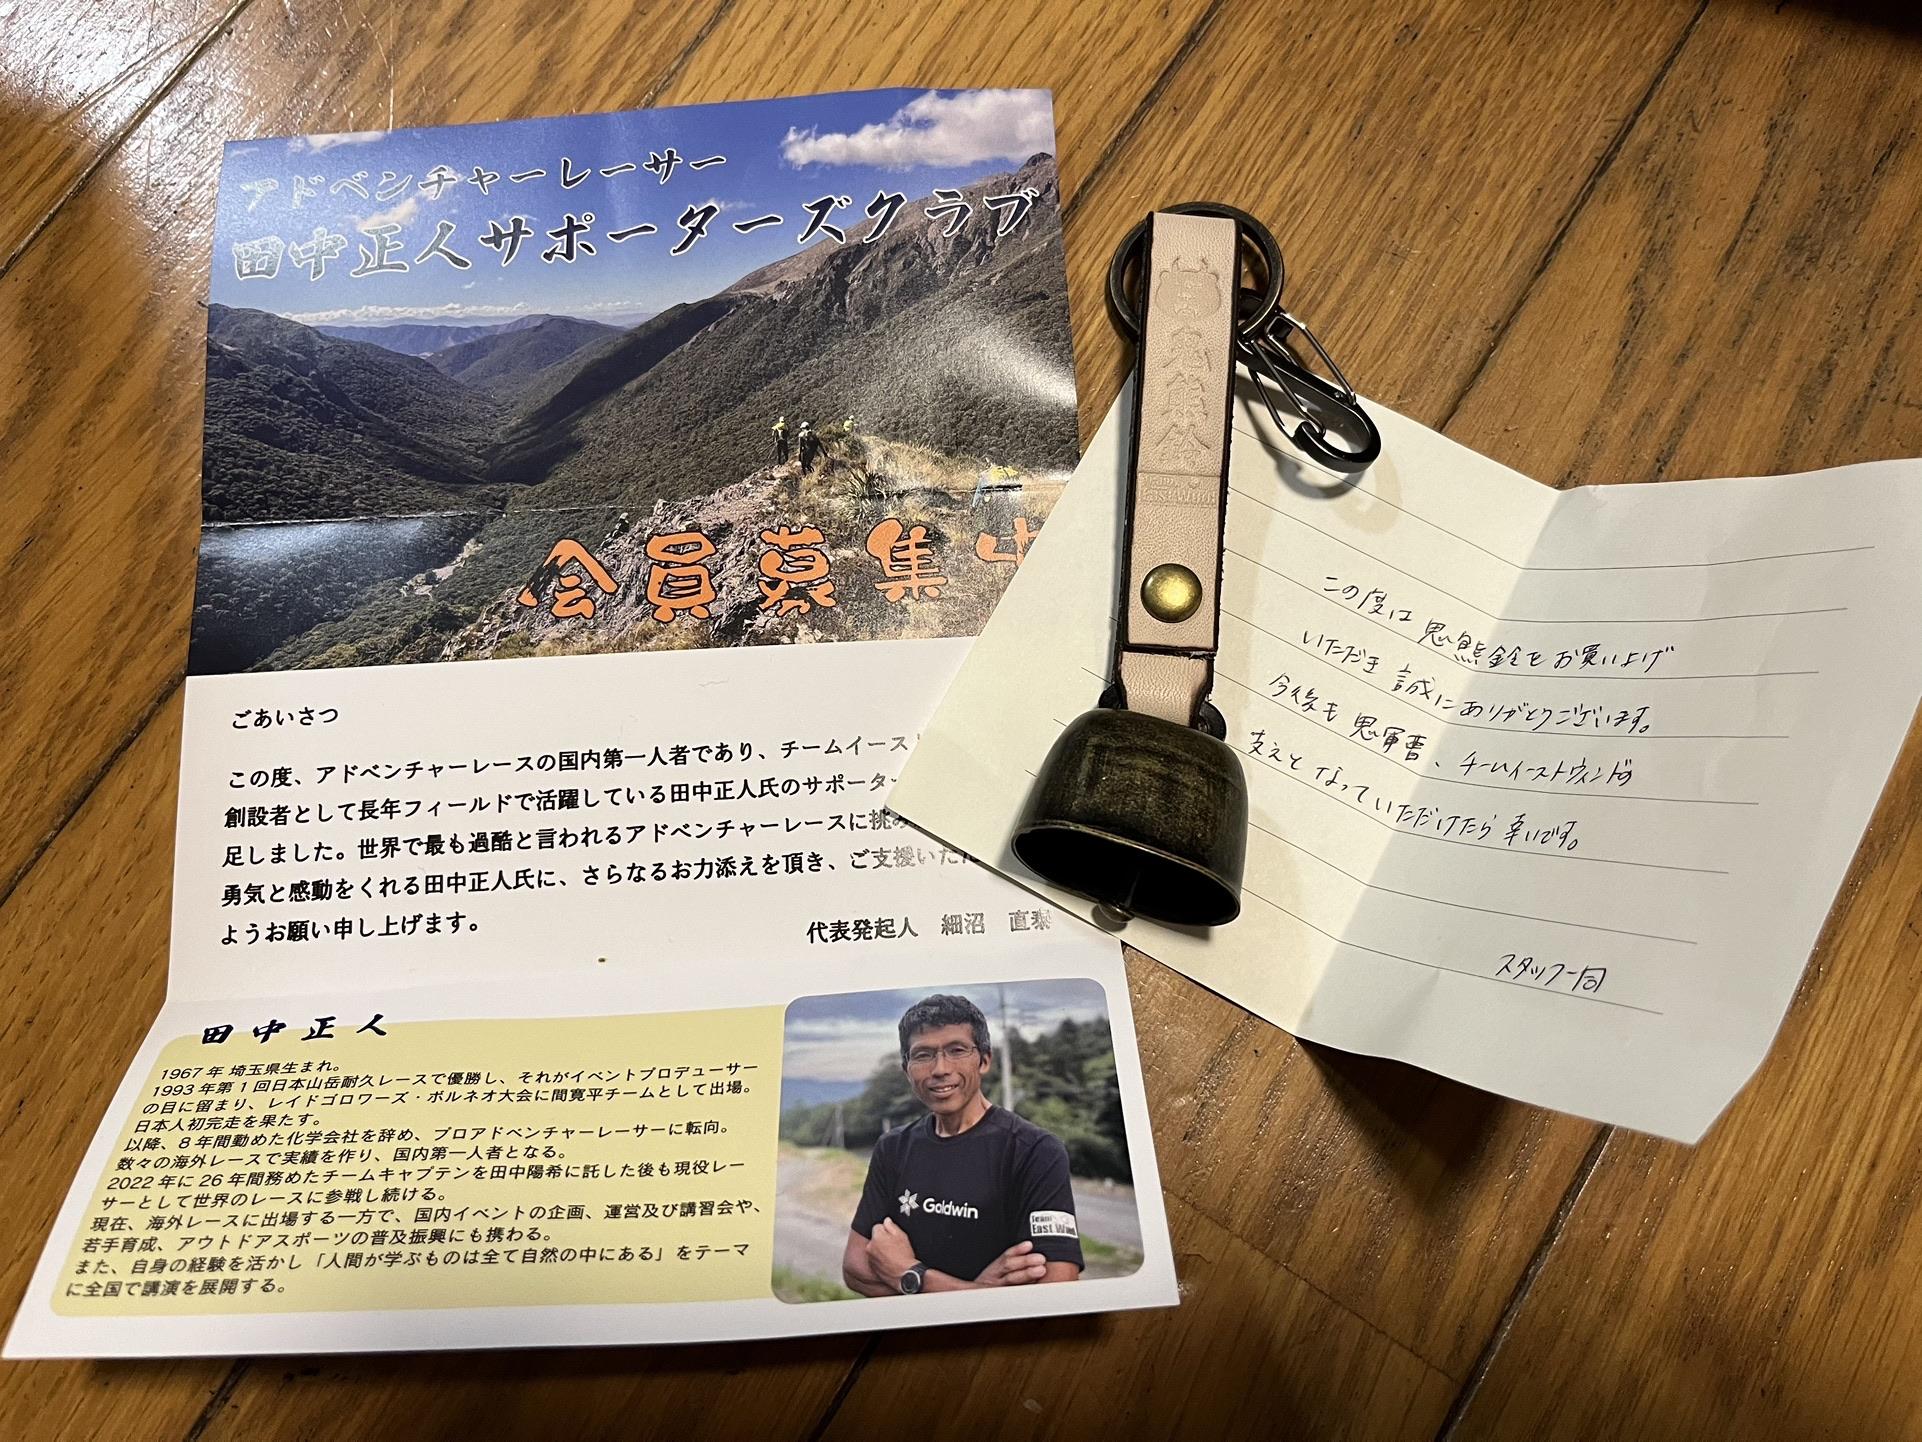 アドベンチャーレーサー
田中正人サポーターズクラブ
会員募集中
ごあいさつ
この度、アドベンチャーレースの国内第一人者であり、チームイースト
創設者として長年フィールドで活躍している田中正人氏のサポーター
足しました。世界で最も過酷と言われるアドベンチャーレースに挑み
勇気と感動をくれる田中正人氏に、さらなるお力添えを頂き、ご支援いただ
ようお願い申し上げます。
代表発起人 細沼 直泰
田中正人
1967年 埼玉県生まれ。
1993年第1回日本山岳耐久レースで優勝し、それがイベントプロデューサー
の目に留まり、レイドゴロワーズ・ボルネオ大会に間寛平チームとして出場。
日本人初完走を果たす。
以降、8年間勤めた化学会社を辞め、プロアドベンチャーレーサーに転向。
数々の海外レースで実績を作り、国内第一人者となる。
2022年に26年間務めたチームキャプテンを田中陽希に託した後も現役レー
サーとして世界のレースに参戦し続ける。
現在、海外レースに出場する一方で、国内イベントの企画、運営及び講習会や、
若手育成、アウトドアスポーツの普及振興にも携わる。
また、自身の経験を活かし「人間が学ぶものは全て自然の中にある」をテーマ
に全国で講演を展開する。
Goldwin
Team
East Wind
鬼熊鈴
この度は 鬼熊鈴をお買い上げ
いただき 誠にありがとうございます。
今後も 鬼軍曹、チームイーストウィンドの
支えとなっていただけたら幸いです。
スタッフ一同